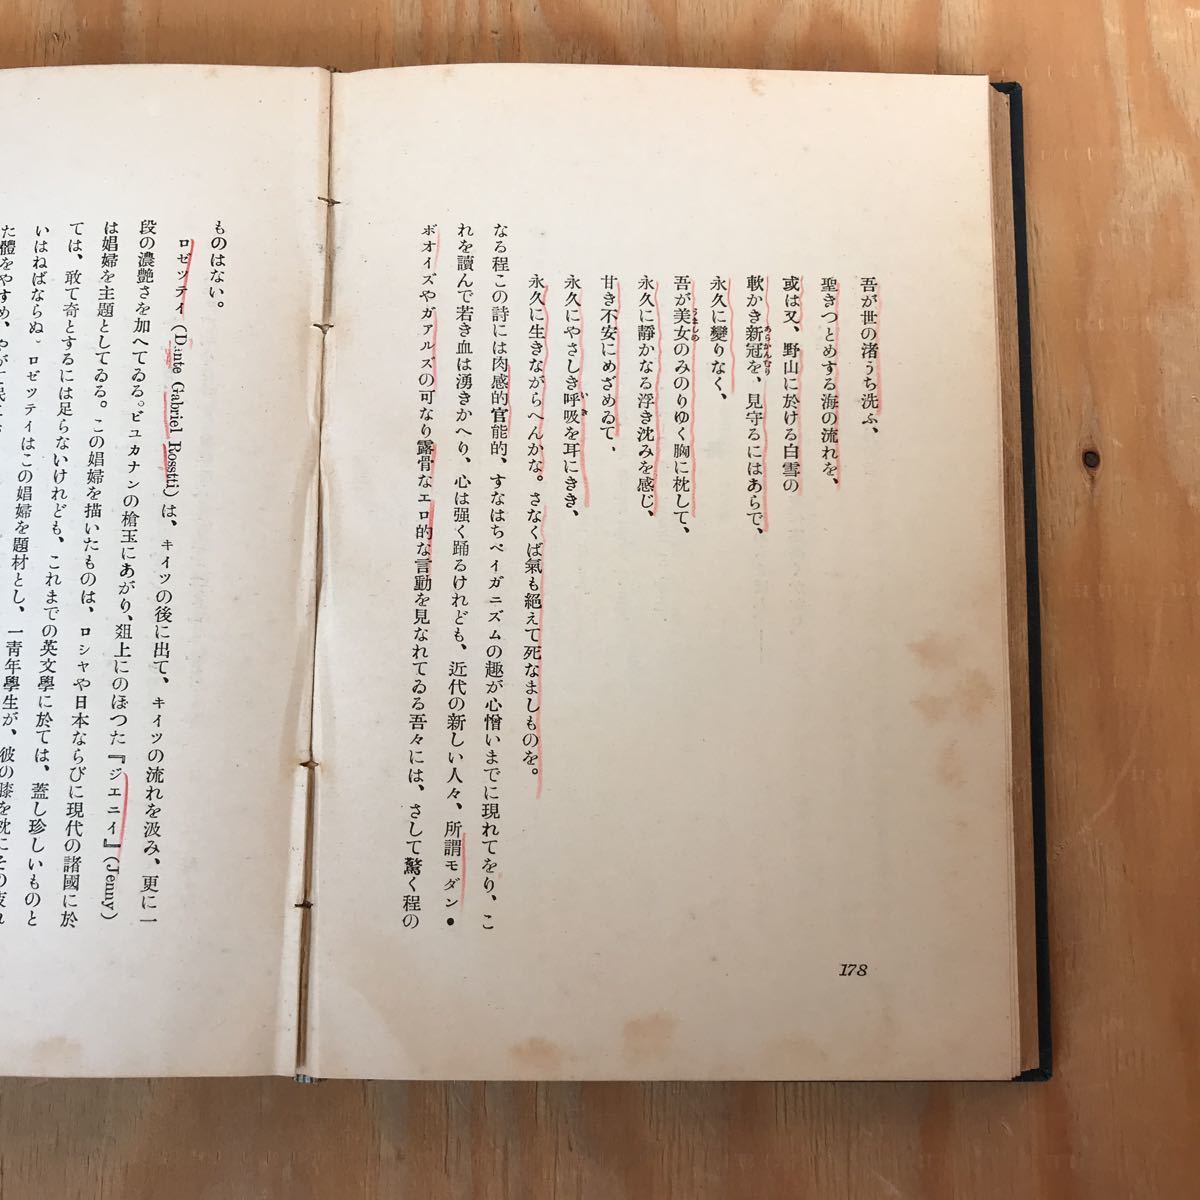 吾が世の渚うち洗ふ、
聖きつとめする海の流れを、
或は又、野山に於ける白雪の
軟かき新冠を、見守るにはあらで、
永久に變りなく、
吾が美女のみのりゆく胸に枕して、
永久に靜かなる浮き沈みを感じ、
甘き不安にめざめゐて、
永久にやさしき呼吸を耳にきき、
永久に生きながらへんかな。さなくば氣も絕えて死なましものを。
なる程この詩には肉感的官能的、すなはちペイガニズムの趣が心憎いまでに現れてをり、こ
れを讀んで若き血は湧きかへり、心は强く踊るけれども、近代の新しい人々、所謂モダン・
ボオイズやガアルズの可なり露骨なエロ的な言動を見なれてゐる吾々には、さして驚く程の
178
ものはない。
ロゼツティ(Dante Gabriel Rosstti)は、キイツの後に出て、キイツの流れを汲み、更に一
段の濃艶さを加へてゐる。ビユカナンの槍玉にあがり、俎上にのぼつた『ジエニイ』(Jenny)
は娼婦を主題としてゐる。この娼婦を描いたものは、ロシヤや日本ならびに現代の諸國に於
ては、敢て奇とするには足らないけれども、これまでの英文學に於ては、蓋し珍しいものと
いはねばならぬ。ロゼツティはこの娼婦を題材とし、一靑年學生が、彼の膝を枕にその疲れ
た體をやすめ、やが